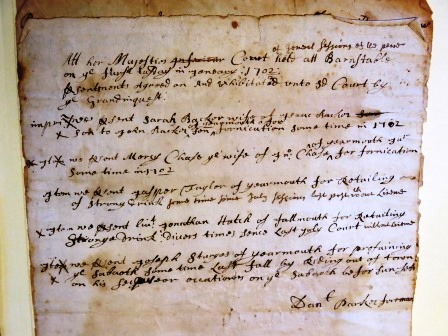 Att her Majesties Court held att Barnstable
of Generl Sessions of the peace
on ye first tusday in January 1702
psentments Agreed on And Exhibitated unto sd Court by
ye Grandinquest
imprs we psent Sarah Backer wife of Isaac Backer
Son to John Backer Senr of yearmouth for fornication some time in 1702
× Itm we psent Mary Chase ye wife of Jo: Chase of yearmouth for fornication
Some time in 1702
Itm we psent Jasper Taylor of yearmouth for Retailing
of Strong Drink some time since July sessions last past without Licence
× Itm we psent Liut Jonathan Hatch of falmouth for Retailing
Strong drink divers times since Last July Court without Licence
× Itm we psent Joseph Sturges of yearmouth for profaining
ye Sabaoth some time Last fall by Rideing out of town
on his occations on ye Sabaoth befor sun-sett
Danl Parker forman